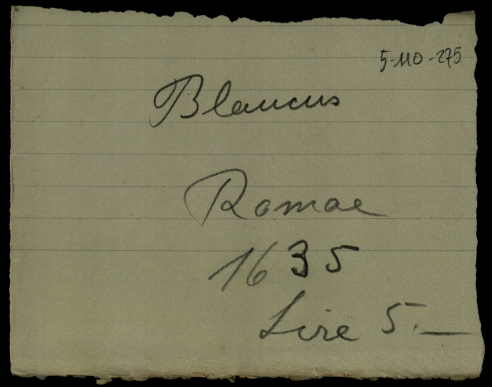 5-110-275
Blancus
Romae
1635
Lire 5.—